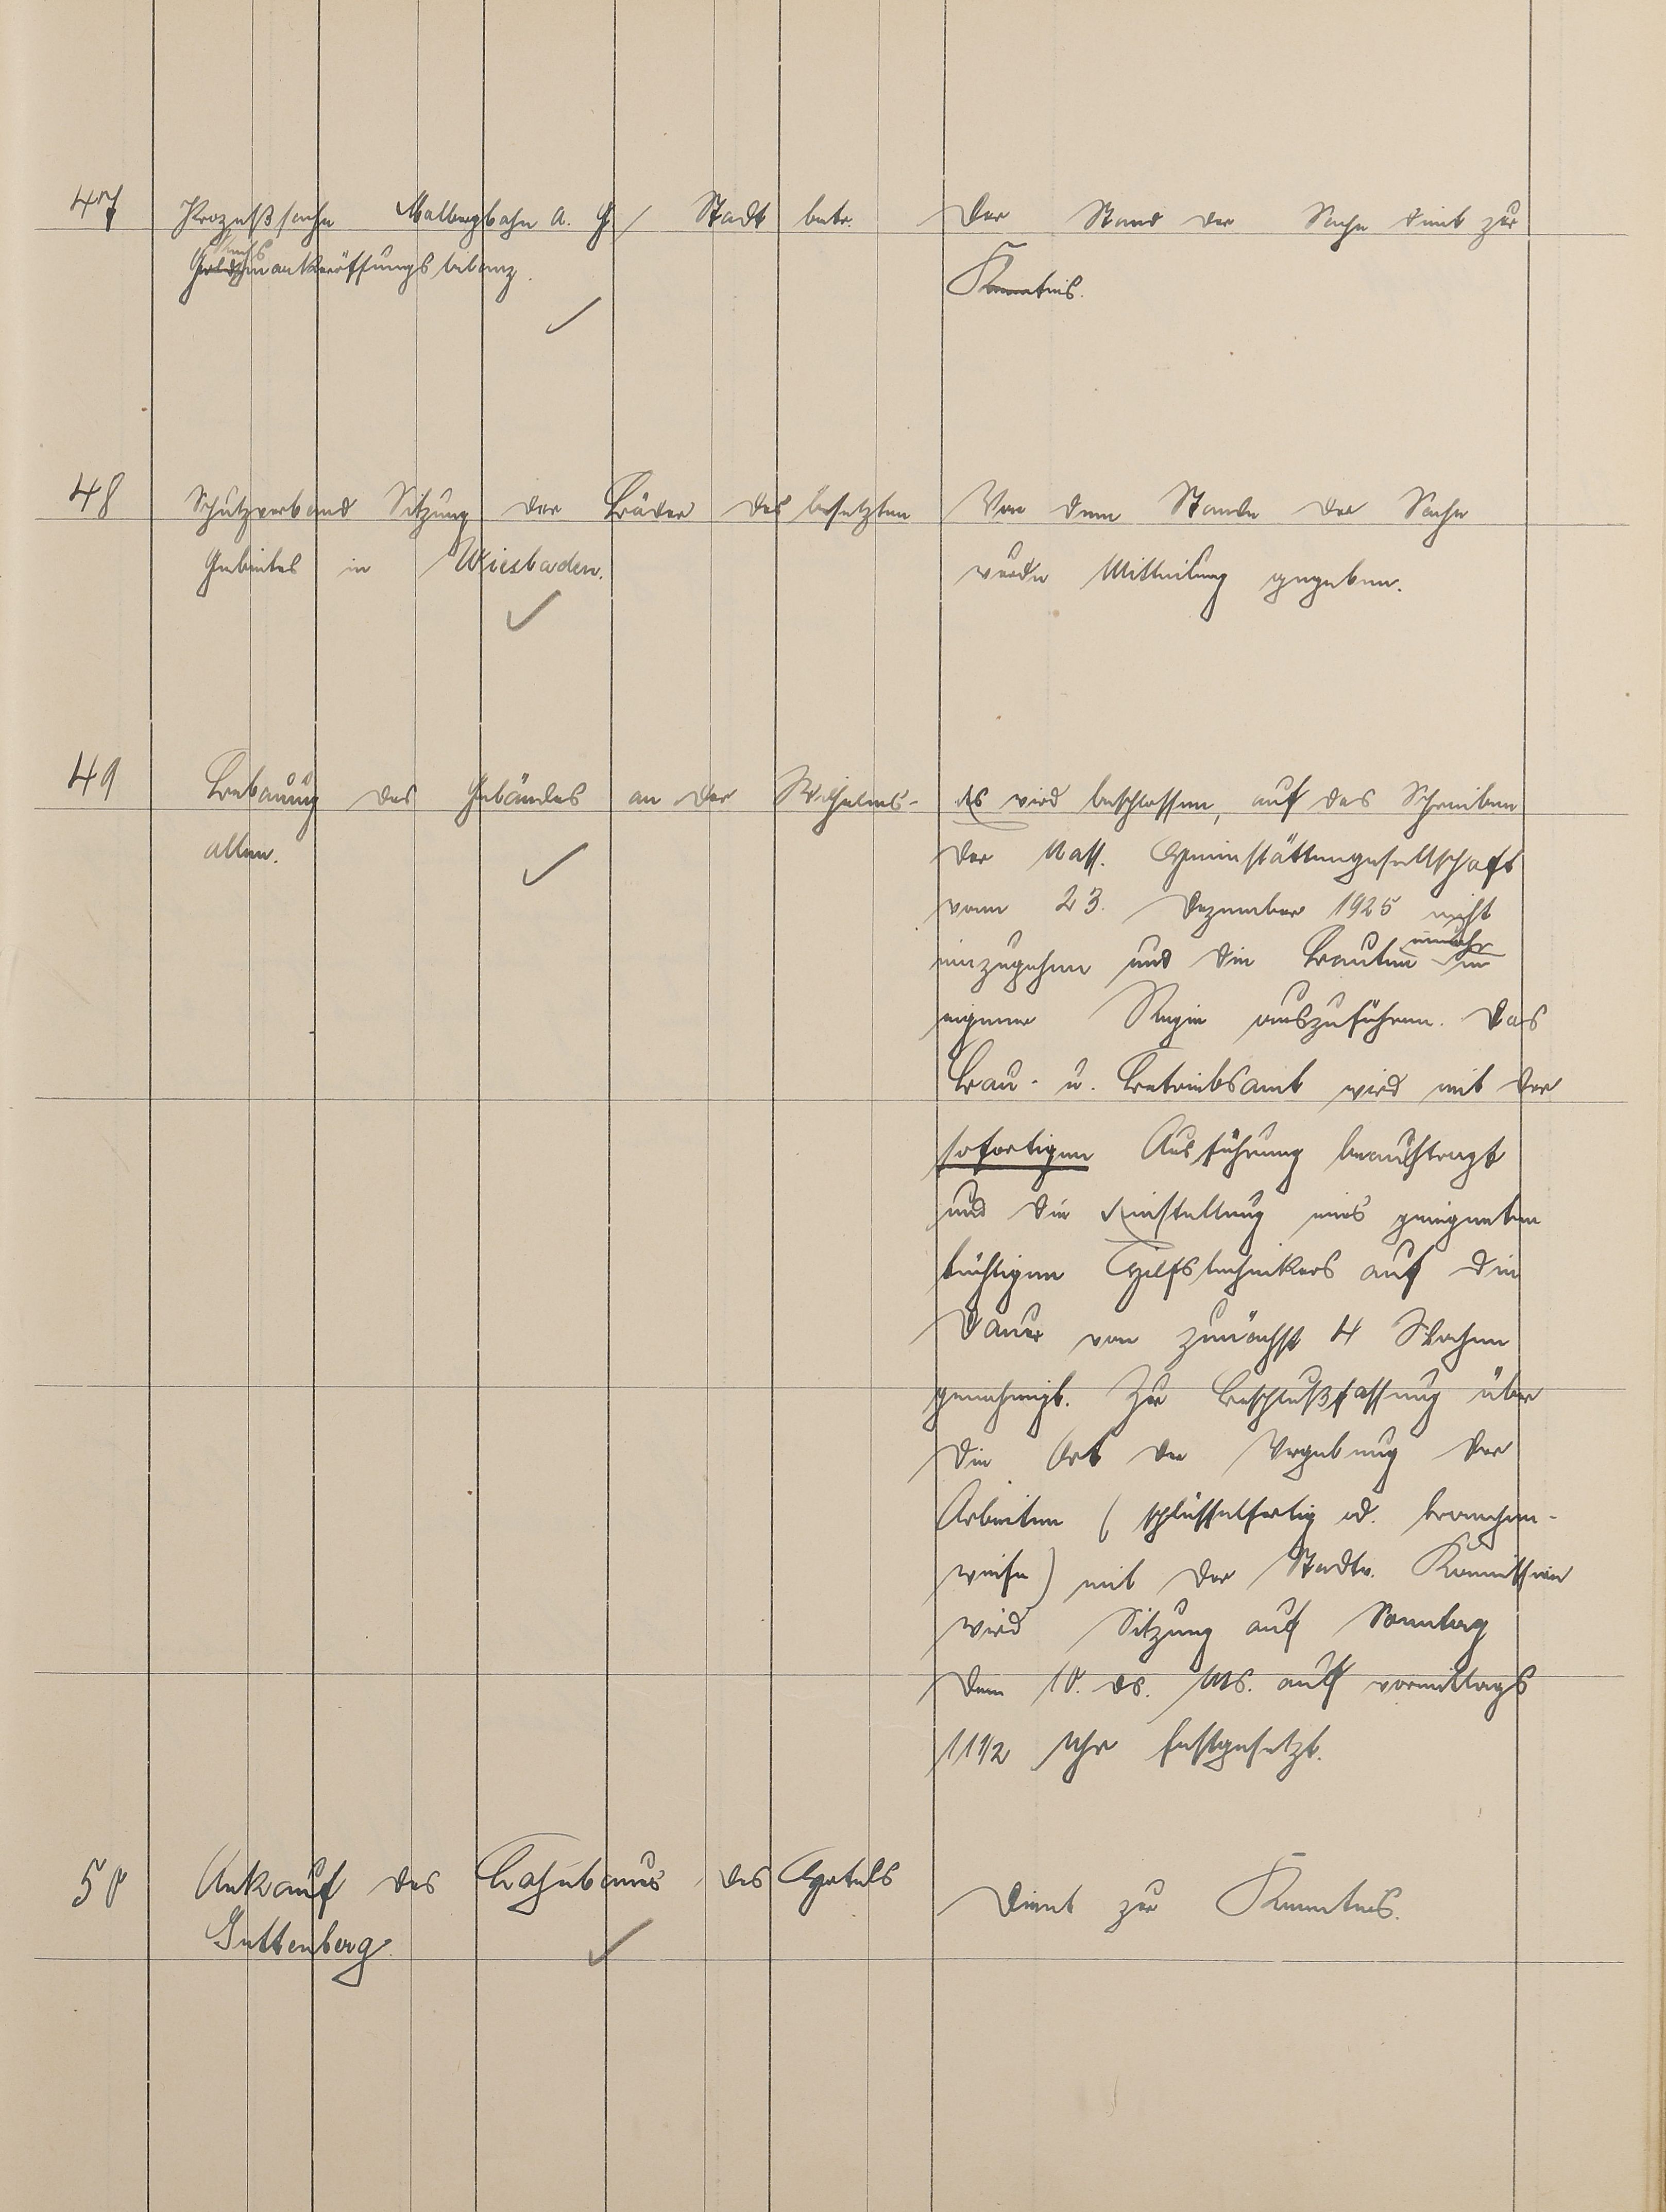 47
Prozeßsache Malbergbahn A. G/ Stadt betr.
markeröffnungsbilanz.
Der Stand der Sache dient zur
Kenntnis.
48
Schutzverband Sitzung der Bäder des besetzten
Gebietes in Wiesbaden.
Von dem Stande der Sache
wurde Mitteilung gegeben.
49
Bebauung des Geländes an der Wilhelms-
allee.
Es wird beschlossen, auf das Schreiben
der Nass. Heimstättengesellschaft
vom 23. Dezember 1925 nicht
einzugehen und die Bauten in
eigener Regie auszuführen. Das
Bau- u. Betriebsamt wird mit der
sofortigen Ausführung beauftragt
und die Einstellung eines geeigneten
tüchtigen Hilfstechnikers auf die
Dauer von zunächst 4 Wochen
genehmigt. Zur Beschlußfassung über
die Art der Vergebung der
Arbeiten (schlüsselfertig od. branchen-
weise) mit der Stadtv. Kommission
wird Sitzung auf Sonntag
dem 10. ds. Mts. auf vormittags
11 1/2 Uhr festgesetzt.
50
Ankauf des des Hotels
Guttenberg
Dient zur Kenntnis.